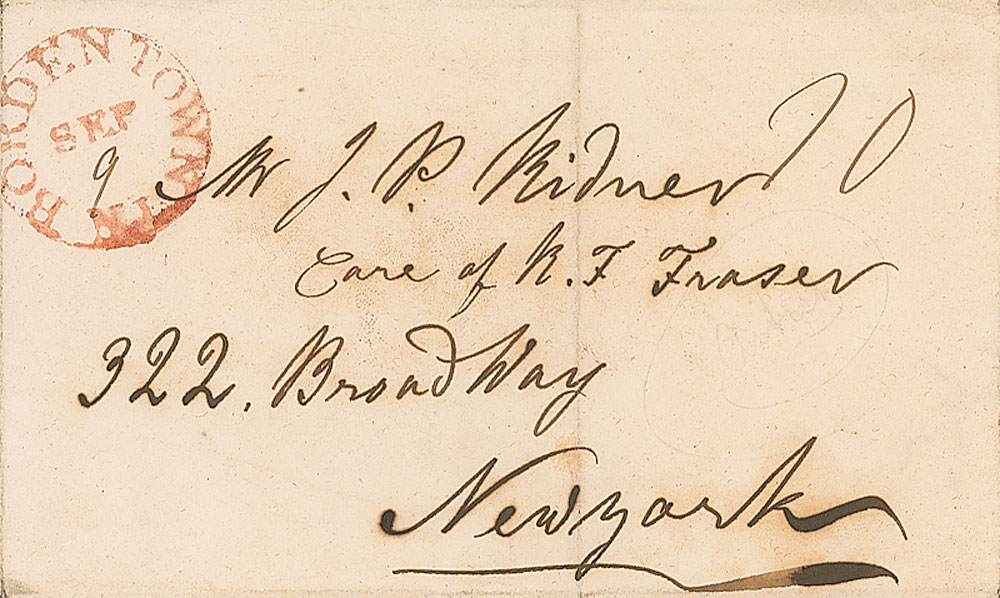 BORDENTOWN N.J.
SEP
9
10
Mr J. P. Ridner
Care of R. F Fraser
322. BroadWay
Newyork